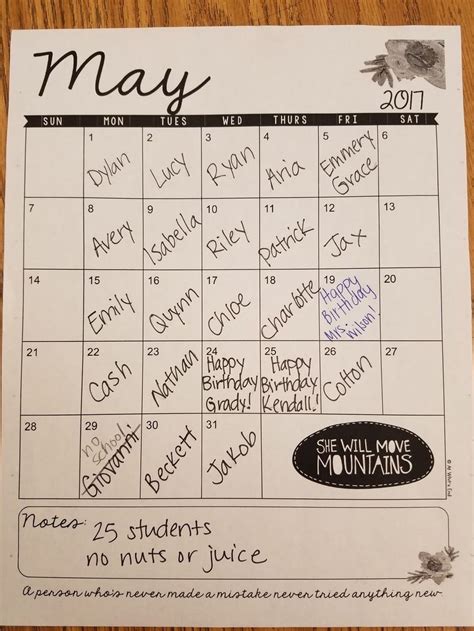 May
2017
SUN MON TUES WED THURS FRI SAT
1 2 3 4 5 6
Dylan Lucy Ryan Aria Emmery Grace
7 8 9 10 11 12 13
Avery Isabella Riley Patrick Jax
14 15 16 17 18 19 20
Emily Quynn Chloe Charlotte Happy Birthday Mrs. Wilson!
21 22 23 24 25 26 27
Cash Nathan Happy Birthday Grady! Happy Birthday Kendall! Colton
28 29 30 31
no school Giovanni Beckett Jakob
SHE WILL MOVE
MOUNTAINS
Notes: 25 students
no nuts or juice
A person who's never made a mistake never tried anything new.